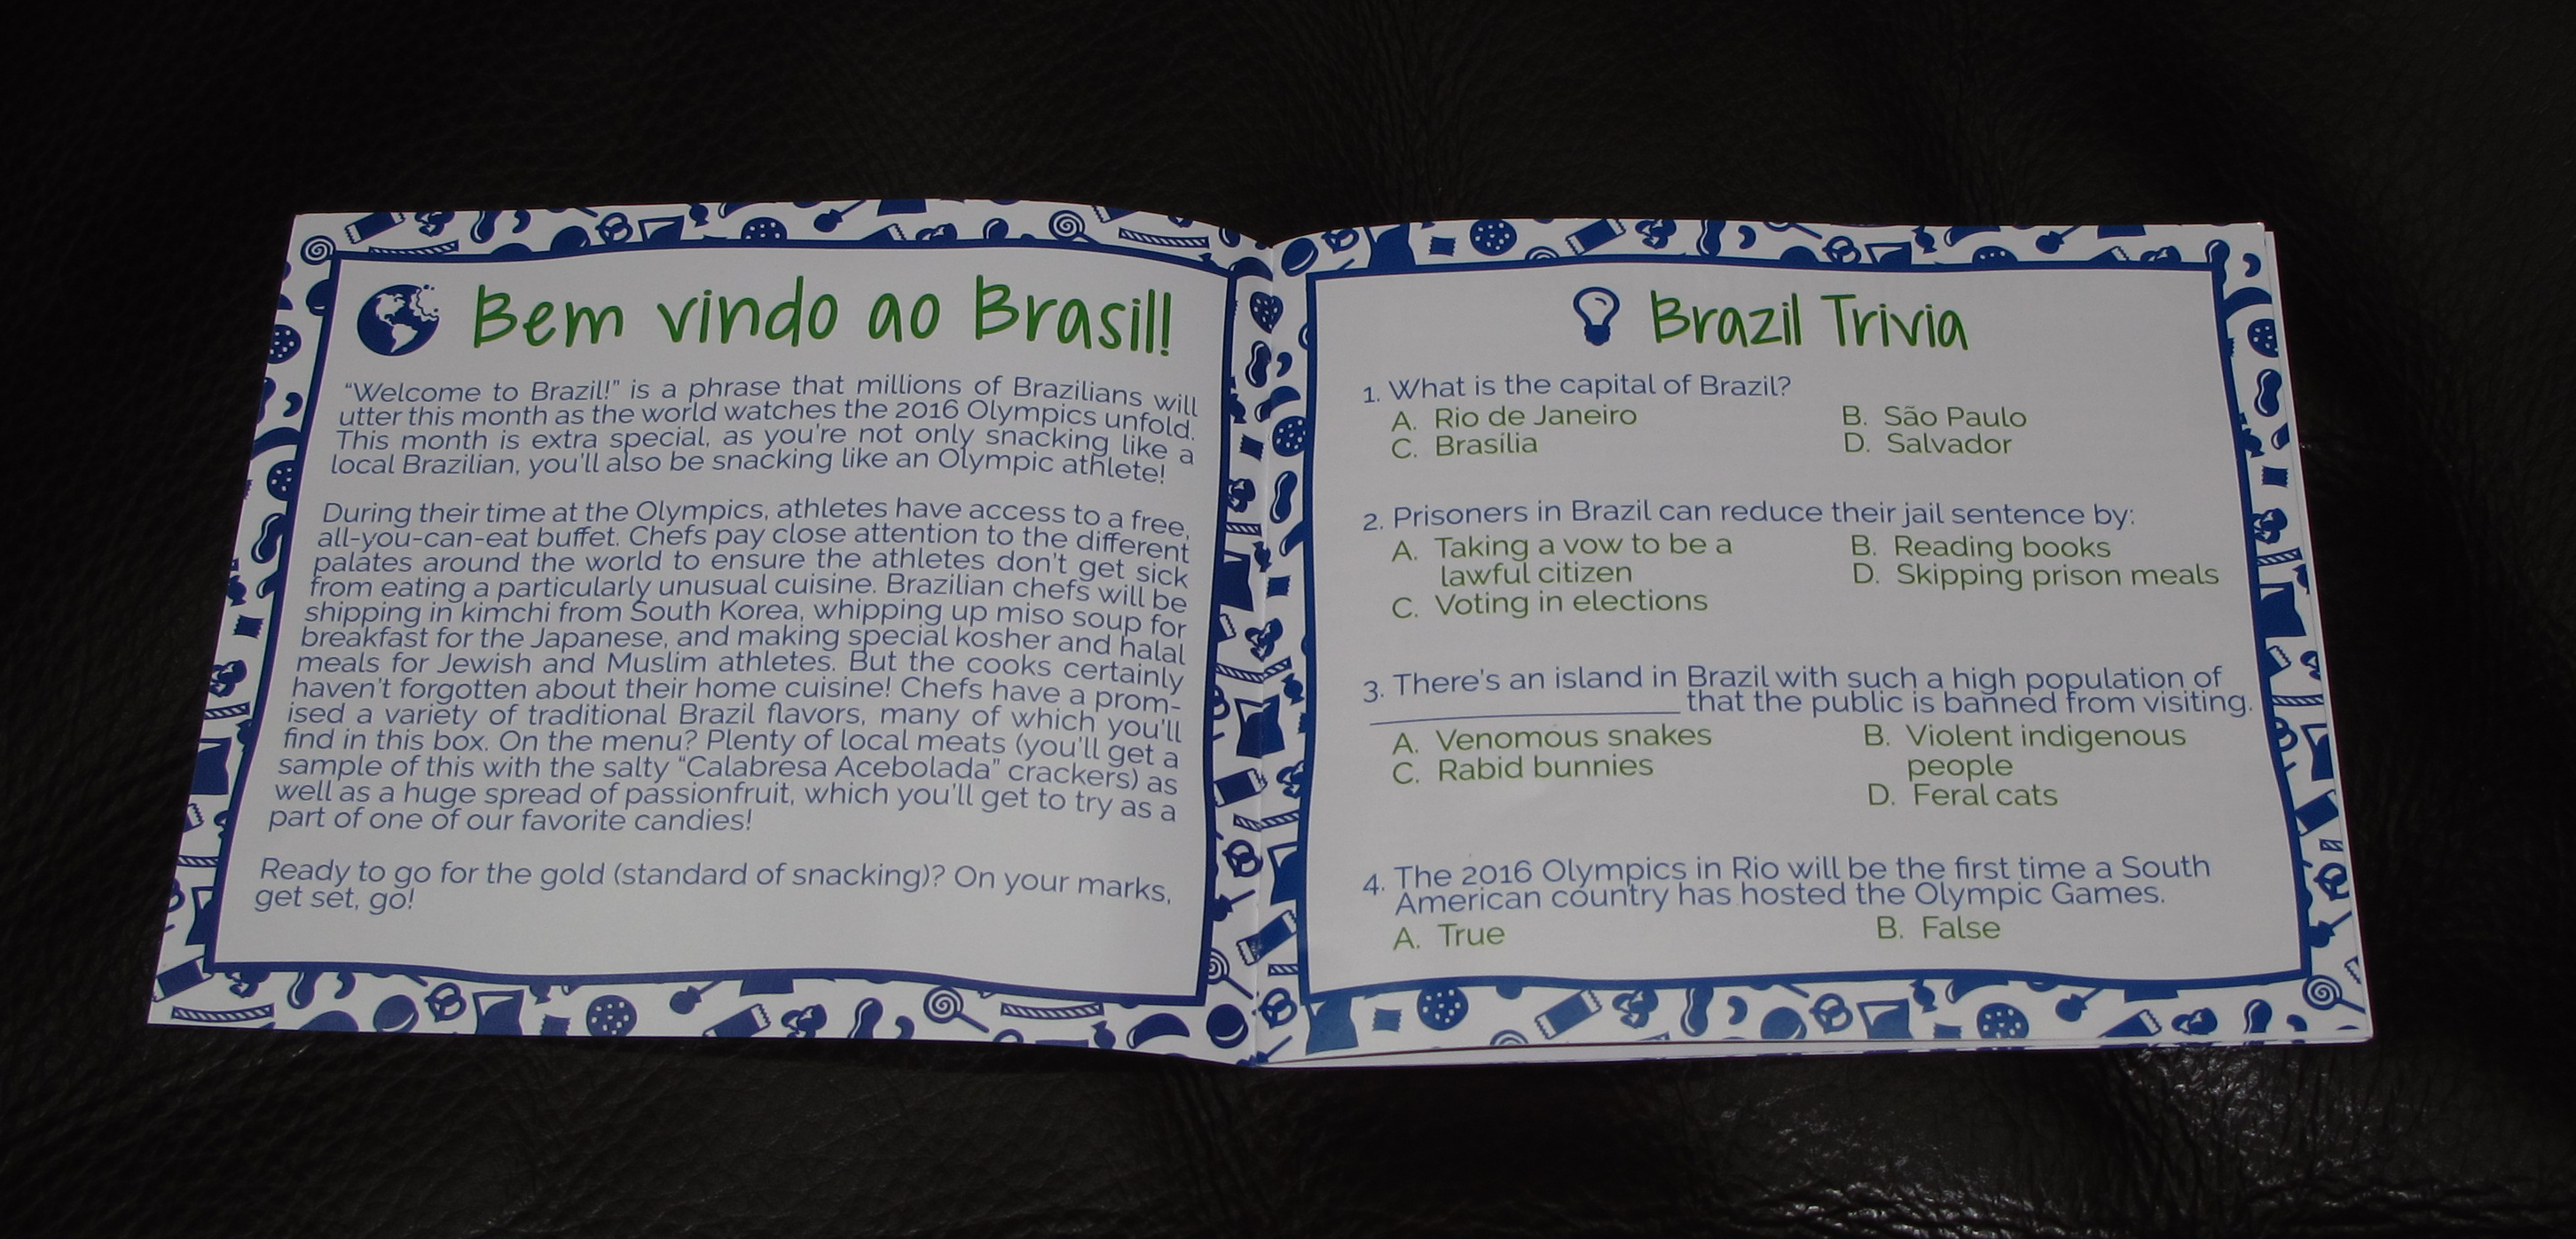 Bem vindo ao Brasil!
“Welcome to Brazil!” is a phrase that millions of Brazilians will
utter this month as the world watches the 2016 Olympics unfold.
This month is extra special, as you're not only snacking like a
local Brazilian, you'll also be snacking like an Olympic athlete!
During their time at the Olympics, athletes have access to a free,
all-you-can-eat buffet. Chefs pay close attention to the different
palates around the world to ensure the athletes don't get sick
from eating a particularly unusual cuisine. Brazilian chefs will be
shipping in kimchi from South Korea, whipping up miso soup for
breakfast for the Japanese, and making special kosher and halal
meals for Jewish and Muslim athletes. But the cooks certainly
haven't forgotten about their home cuisine! Chefs have a prom-
ised a variety of traditional Brazil flavors, many of which you'll
find in this box. On the menu? Plenty of local meats (you'll get a
sample of this with the salty “Calabresa Acebolada” crackers) as
well as a huge spread of passionfruit, which you'll get to try as a
part of one of our favorite candies!
Ready to go for the gold (standard of snacking)? On your marks,
get set, go!
Brazil Trivia
1. What is the capital of Brazil?
A. Rio de Janeiro B. São Paulo
C. Brasília D. Salvador
2. Prisoners in Brazil can reduce their jail sentence by:
A. Taking a vow to be a
lawful citizen
B. Reading books
C. Voting in elections
D. Skipping prison meals
3. There's an island in Brazil with such a high population of
____________________ that the public is banned from visiting.
A. Venomous snakes
B. Violent indigenous
people
C. Rabid bunnies
D. Feral cats
4. The 2016 Olympics in Rio will be the first time a South
American country has hosted the Olympic Games.
A. True B. False